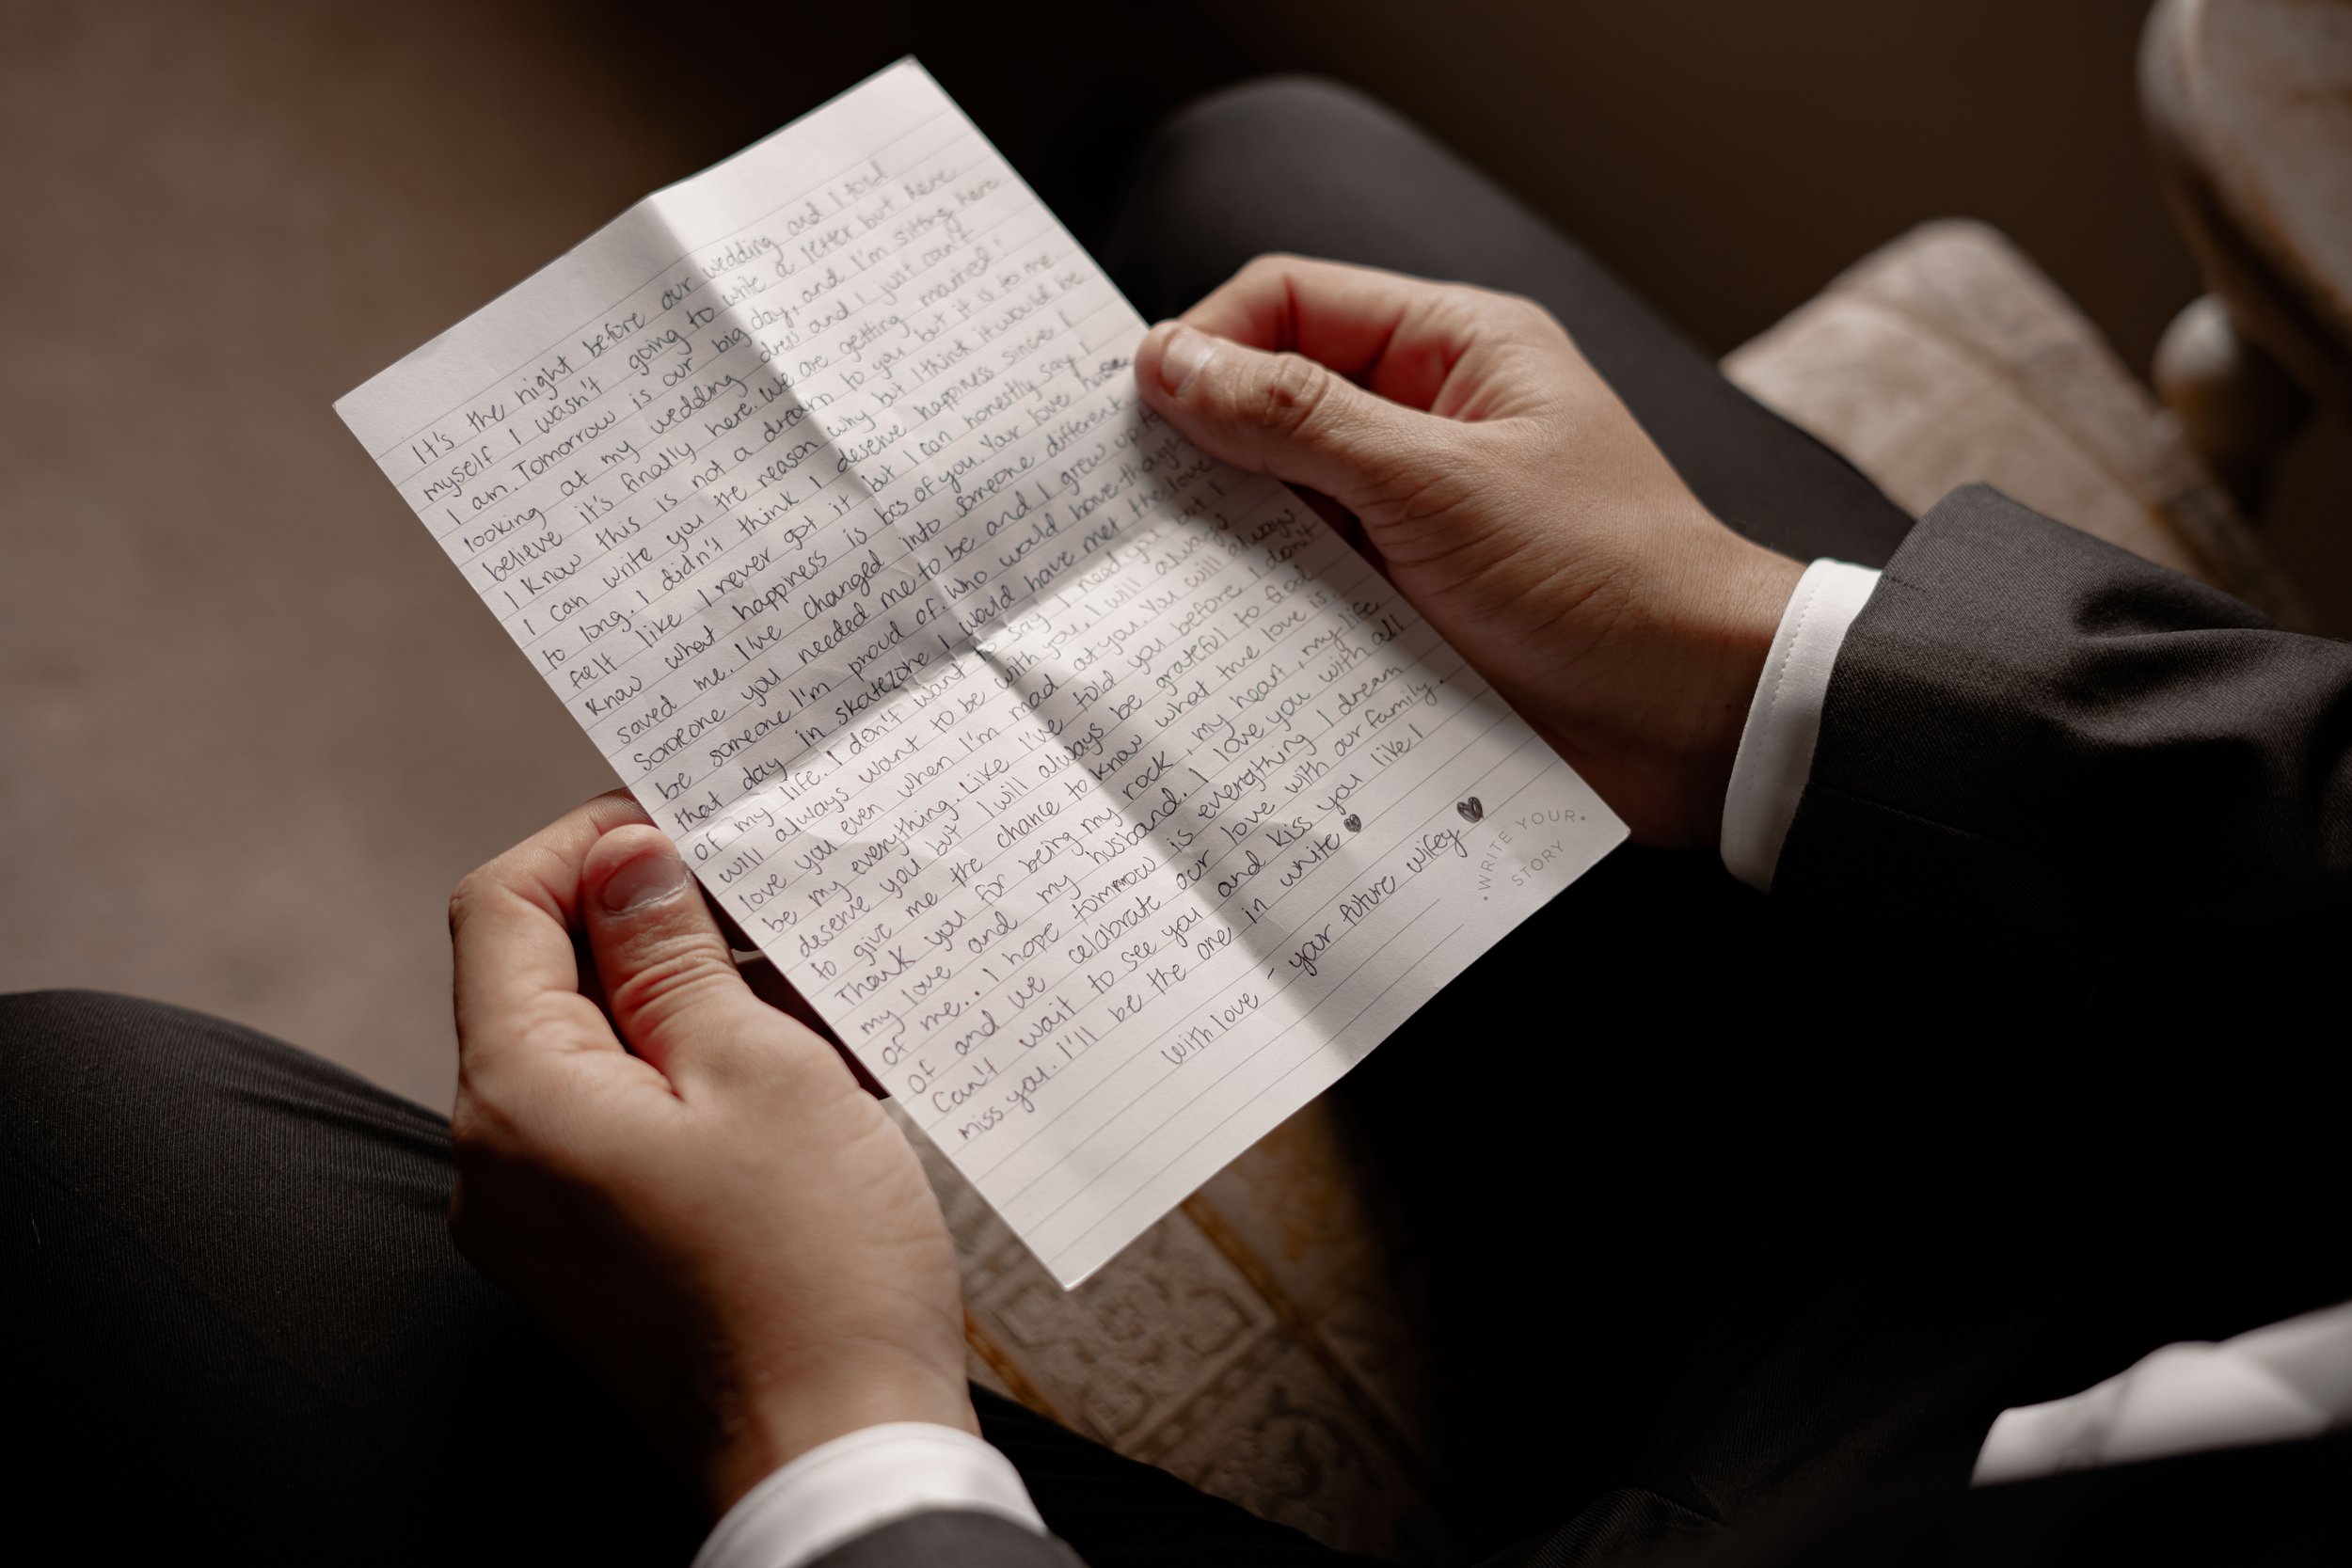 It's the night before our wedding and I told
myself I wasn't going to write a letter but here
I am. Tomorrow is our big day, and I'm sitting here
looking at my wedding dress and I just can't
believe it's finally here. We are getting married!
I know this is not a dream to you but it is to me.
I can write you the reason why but I think it would be
to long. I didn't think I deserve happiness since I
felt like I never got it but I can honestly say I
know what happiness is bcs of you. Your love
saved me. I've changed into someone different
someone you needed me to be and I grew up to
be someone I'm proud of. Who would have thought
that day in skatezone I would have met the love
of my life. I don't want to say I need you but I
will always want to be with you. I will always
love you even when I'm mad at you. You will always
be my everything. Like I've told you before I don't
deserve you but I will always be grateful to God
to give me the chance to know what true love is.
Thank you for being my rock, my heart, my life
my love and my husband. I love you with all
of me.. I hope tomorrow is everything I dream
of and we celabrate our love with our family.
Can't wait to see you and kiss you like I
miss you. I'll be the one in white
With love - your future wifey
• WRITE YOUR •
STORY